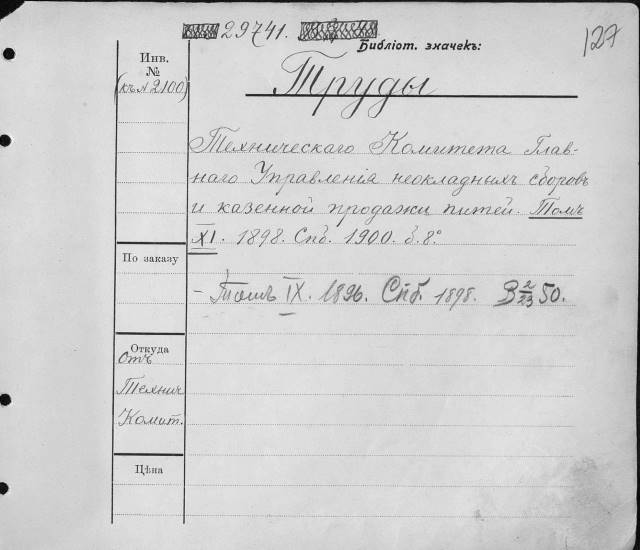 29741.
Библіот. значекъ:
127
Инв.
№
(къ № 2100)
Труды
Техническаго Комитета Глав-
наго Управленія неокладныхъ сборовъ
и казенной продажи питей. Томъ
XI. 1898. Спб. 1900. б. 8°
По заказу
- Томъ IX. 1896. Спб. 1898. В 2/23 50.
Откуда
Отъ
Технич
Комит.
Цѣна